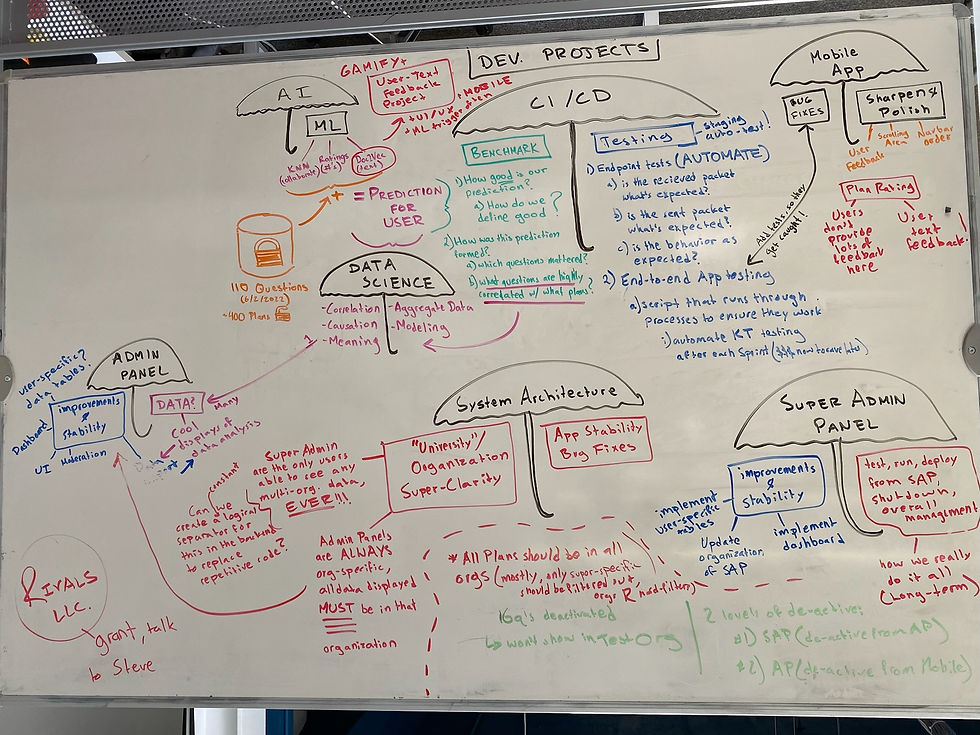 DEV. PROJECTS
AI
ML
KNN
(collaborate)
Ratings
(#'s)
Doc2Vec
(text)
GAMIFY+
User-Text
Feedback
Project
+ UI/UX
+ MOBILE
+ ML trigger often
+
= PREDICTION
FOR
USER
110 Questions
(6/2/2022)
~400 Plans
DATA
SCIENCE
-Correlation
-Causation
-Meaning
-Aggregate Data
-Modeling
CI/CD
BENCHMARK
1) How good is our
prediction?
a) How do we
define good?
2) How was this prediction
formed?
a) which questions mattered?
b) what questions are highly
correlated w/ what plans?
Testing
- staging
auto-test!
1) Endpoint tests (AUTOMATE)
a) is the recieved packet
what's expected?
b) is the sent packet
what's expected?
c) is the behavior as
expected?
2) End-to-end App testing
a) script that runs through
processes to ensure they work
i) automate KT testing
after each sprint ($$$ now to save later)
Add tests, so they
get caught!
Mobile
App
BUG
FIXES
Sharpen &
Polish
User
Feedback
Scrolling
Area
Navbar
order
Plan Rating
Users
don't
provide
lots of
feedback
here
User
text
feedback!
ADMIN
PANEL
user-specific?
data tables?
improvements
&
stability
Dashboard
UI
Moderation
DATA?
Many
Cool
displays of
data analysis
System Architecture
"University"/
Organization
Super-Clarity
App Stability
Bug Fixes
Super Admin
are the only users
able to see any
multi-org. data,
EVER!!!
constant
Can we
create a logical
separator for
this in the backend
to replace
repetitive code?
Admin Panels
are ALWAYS
org-specific,
all data displayed
MUST be in that
organization
* All Plans should be in all
orgs (mostly, only super-specific
should be filtered out,
orgs R hard-filter)
16q's deactivated
↳ won't show in Test Org
2 levels of de-active:
#1) SAP (de-active from AP)
#2) AP (de-active from Mobile)
SUPER ADMIN
PANEL
improvements
&
stability
implement
user-specific
Update
organization
of SAP
implement
dashboard
test, run, deploy
from SAP,
shutdown,
overall
management
how we really
do it all
(Long-term)
RIVALS
LLC.
grant, talk
to Steve